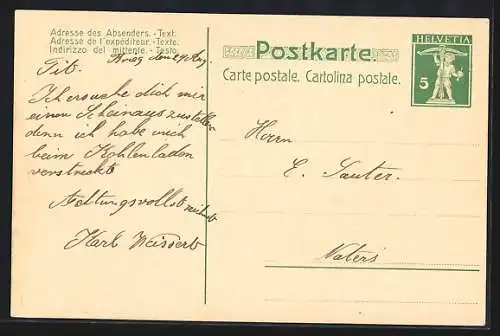 Adresse des Absenders. - Text.
Adresse de l'expéditeur. - Texte.
Indirizzo del mittente. - Testo.
Postkarte.
Carte postale. Cartolina postale.
HELVETIA
5
den 29 Aug.
Tit.
Ich ersuche dich mir
einen Schein auszustellen
denn ich habe mich
beim Kohlenladen
verstreckt
Achtungsvollst
Karl
Herrn
E. Sauter.
Naters